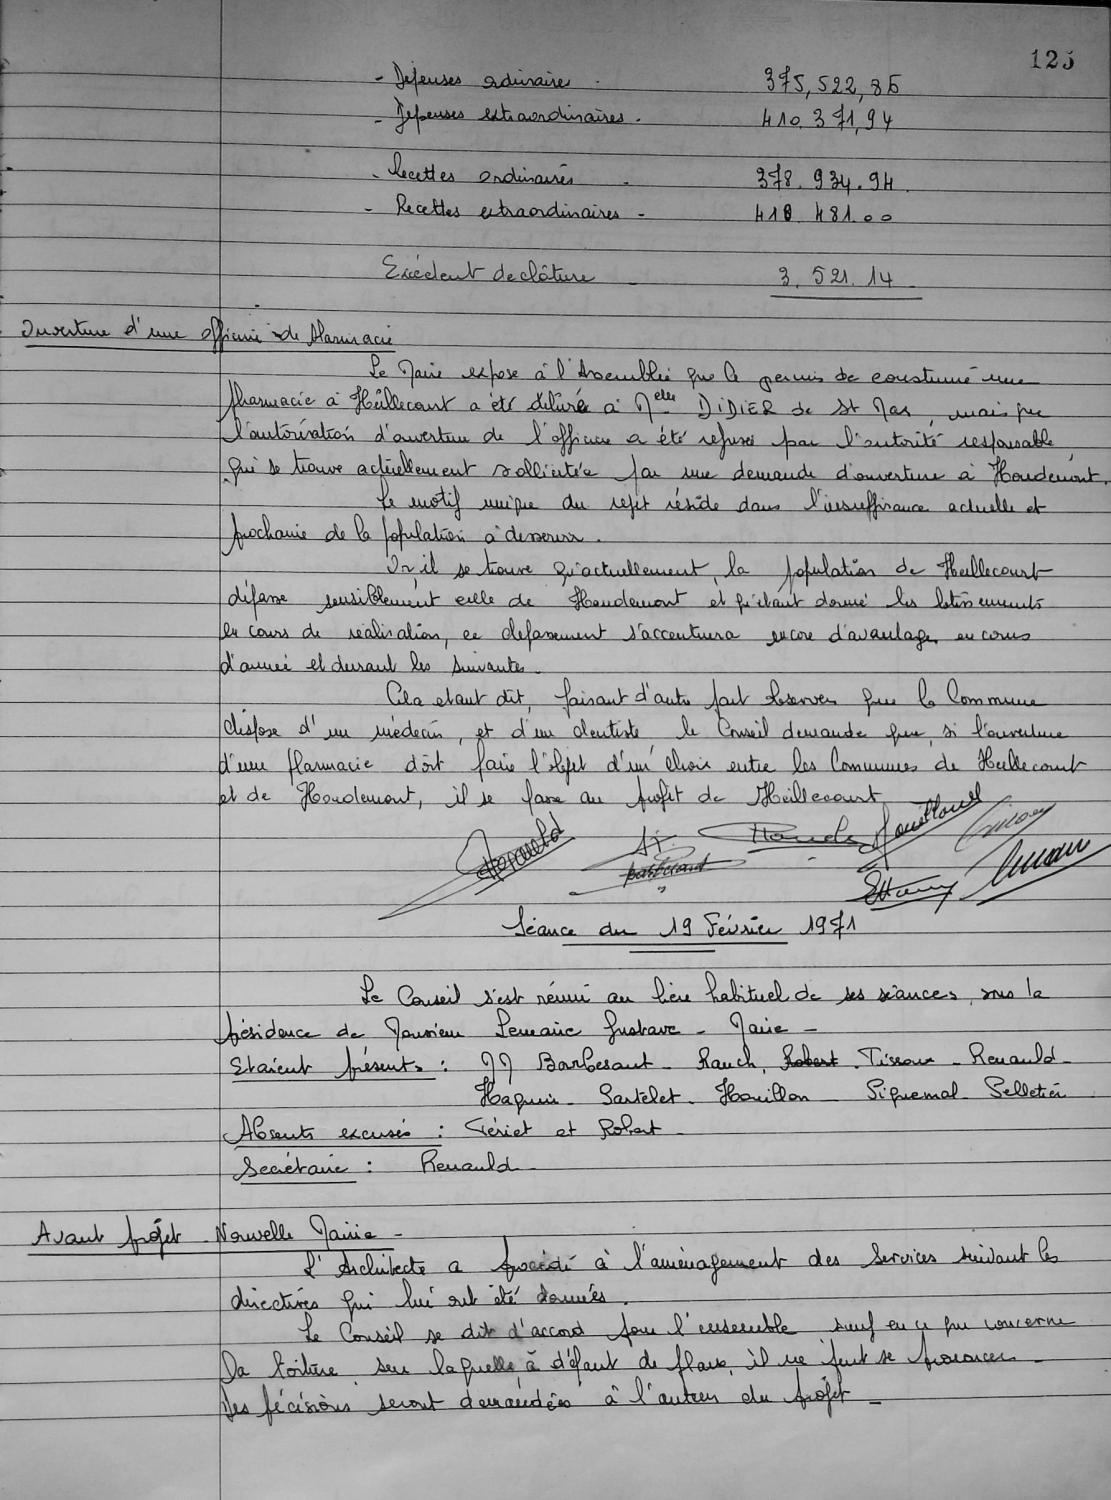 125
- Dépenses ordinaires - 375,522,86
- Dépenses extraordinaires - 410.371,94
- Recettes ordinaires - 378.934.94
- Recettes extraordinaires - 410.481.00
Excédent de clôture - 3.521.14
Ouverture d'une officine de Pharmacie
Le Maire expose à l'Assemblée que le permis de construire une
pharmacie à Heillecourt a été délivré à Melle DIDIER de St Max, mais que
l'autorisation d'ouverture de l'officine a été refusée par l'autorité responsable
qui se trouve actuellement sollicitée par une demande d'ouverture à Houdemont.
Le motif unique du rejet réside dans l'insuffisance actuelle et
prochaine de la population à desservir.
Or, il se trouve qu'actuellement, la population de Heillecourt
dépasse sensiblement celle de Houdemont et qu'étant donné les lotissements
en cours de réalisation, ce dépassement s'accentuera encore d'avantage en cours
d'année et durant les suivantes.
Cela étant dit, faisant d'autre part observer que la Commune
dispose d'un médecin, et d'un dentiste le Conseil demande que, si l'ouverture
d'une pharmacie doit faire l'objet d'un choix entre les Communes de Heillecourt
et de Houdemont, il se fasse au profit de Heillecourt
Séance du 19 Février 1971
Le Conseil s'est réuni au lieu habituel de ses séances, sous la
présidence de Monsieur Lemaire Gustave - Maire -
Etaient présents : MM Barbesant - Rauch, Robert - Tisseaux - Renauld -
Haquin - Sartelet - Houillon - Piquemal - Pelletier
Absents excusés : Fériet et Robert -
Secrétaire : Renauld -
Avant projet - Nouvelle Mairie -
L'Architecte a procédé à l'aménagement des Services suivant les
directives qui lui ont été données.
Le Conseil se dit d'accord pour l'ensemble sauf en ce qui concerne
la toiture sur laquelle, à défaut de plans, il ne peut se prononcer -
Des précisions seront demandées à l'auteur du projet -